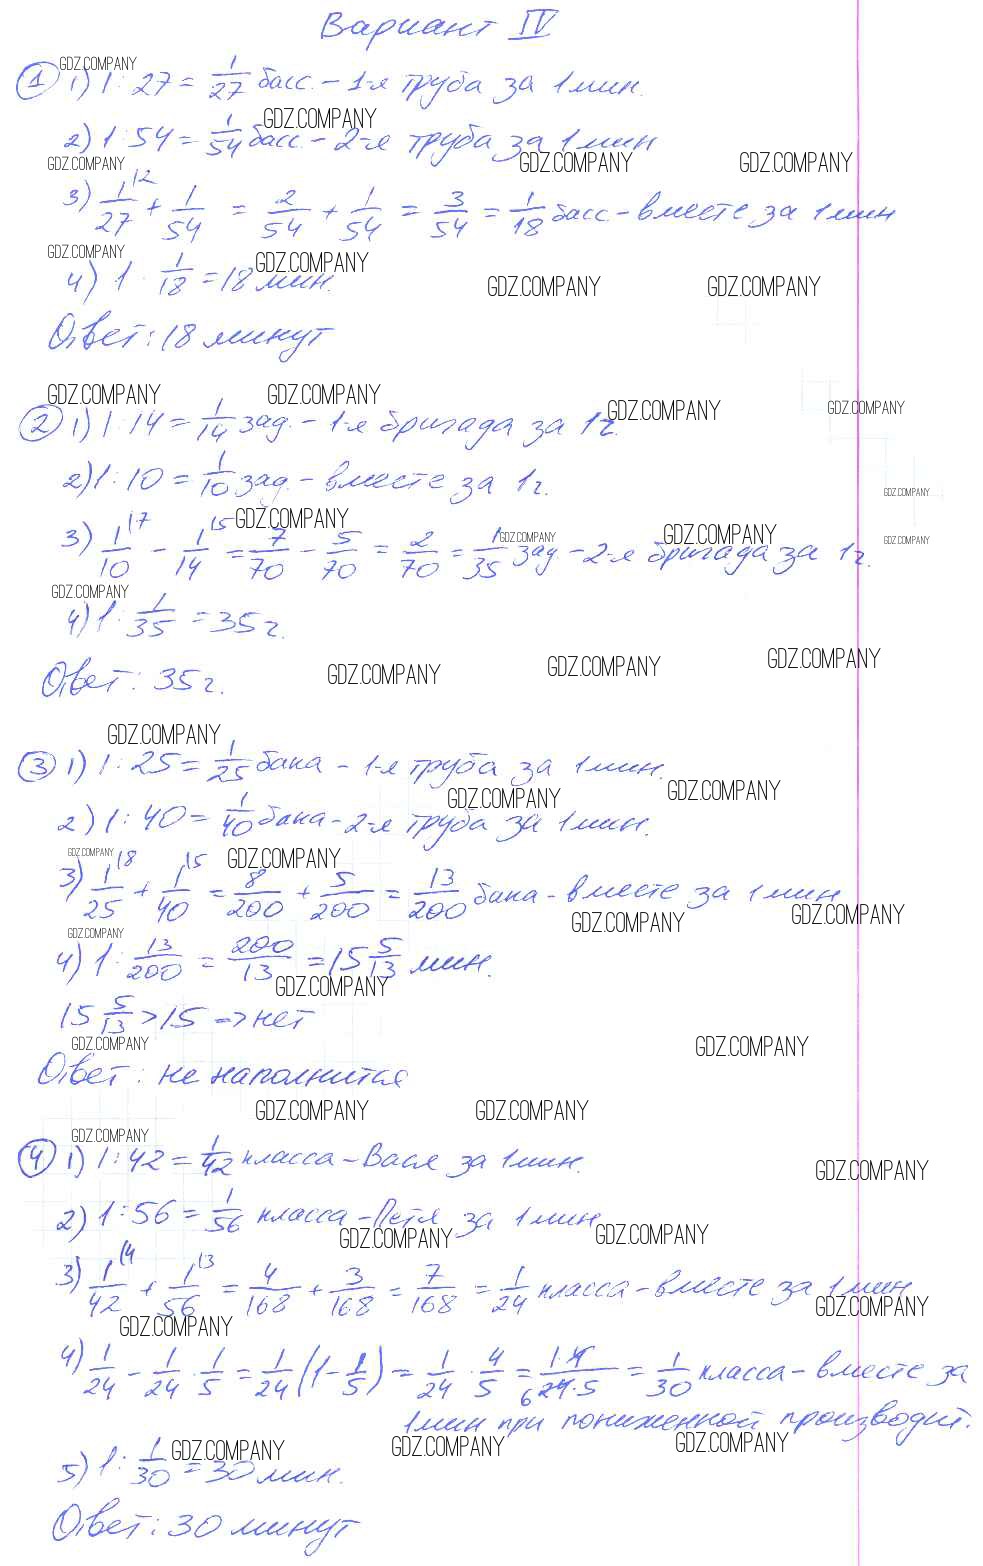 Вариант IV
GDZ.COMPANY
① 1) 1 : 27 = 1/27 басс. – 1-я труба за 1 мин.
GDZ.COMPANY
2) 1 : 54 = 1/54 басс. – 2-я труба за 1 мин
GDZ.COMPANY GDZ.COMPANY GDZ.COMPANY
3) 1/27 + 1/54 = 2/54 + 1/54 = 3/54 = 1/18 басс. – вместе за 1 мин
GDZ.COMPANY GDZ.COMPANY
4) 1 : 1/18 = 18 мин.
GDZ.COMPANY GDZ.COMPANY
Ответ: 18 минут
GDZ.COMPANY GDZ.COMPANY GDZ.COMPANY GDZ.COMPANY
② 1) 1 : 14 = 1/14 зад. – 1-я бригада за 1 ч.
2) 1 : 10 = 1/10 зад. – вместе за 1 ч.
GDZ.COMPANY
GDZ.COMPANY GDZ.COMPANY GDZ.COMPANY GDZ.COMPANY
3) 1/10 – 1/14 = 7/70 – 5/70 = 2/70 = 1/35 зад – 2-я бригада за 1 ч.
GDZ.COMPANY
4) 1 : 1/35 = 35 ч.
Ответ: 35 ч.
GDZ.COMPANY GDZ.COMPANY GDZ.COMPANY
GDZ.COMPANY
③ 1) 1 : 25 = 1/25 бака – 1-я труба за 1 мин.
GDZ.COMPANY GDZ.COMPANY
2) 1 : 40 = 1/40 бака – 2-я труба за 1 мин.
GDZ.COMPANY GDZ.COMPANY
3) 1/25 + 1/40 = 8/200 + 5/200 = 13/200 бака – вместе за 1 мин
GDZ.COMPANY GDZ.COMPANY
GDZ.COMPANY
4) 1 : 13/200 = 200/13 = 15 5/13 мин.
GDZ.COMPANY
15 5/13 > 15 => нет
GDZ.COMPANY GDZ.COMPANY
Ответ: не наполнится
GDZ.COMPANY GDZ.COMPANY
GDZ.COMPANY
④ 1) 1 : 42 = 1/42 класса – Вася за 1 мин.
GDZ.COMPANY
2) 1 : 56 = 1/56 класса – Петя за 1 мин
GDZ.COMPANY GDZ.COMPANY
3) 1/42 + 1/56 = 4/168 + 3/168 = 7/168 = 1/24 класса – вместе за 1 мин
GDZ.COMPANY GDZ.COMPANY
4) 1/24 – 1/24 · 1/5 = 1/24 (1 – 1/5) = 1/24 · 4/5 = 1·4/24·5 = 1/30 класса – вместе за
1 мин при пониженной производит.
GDZ.COMPANY GDZ.COMPANY GDZ.COMPANY
5) 1 : 1/30 = 30 мин.
Ответ: 30 минут